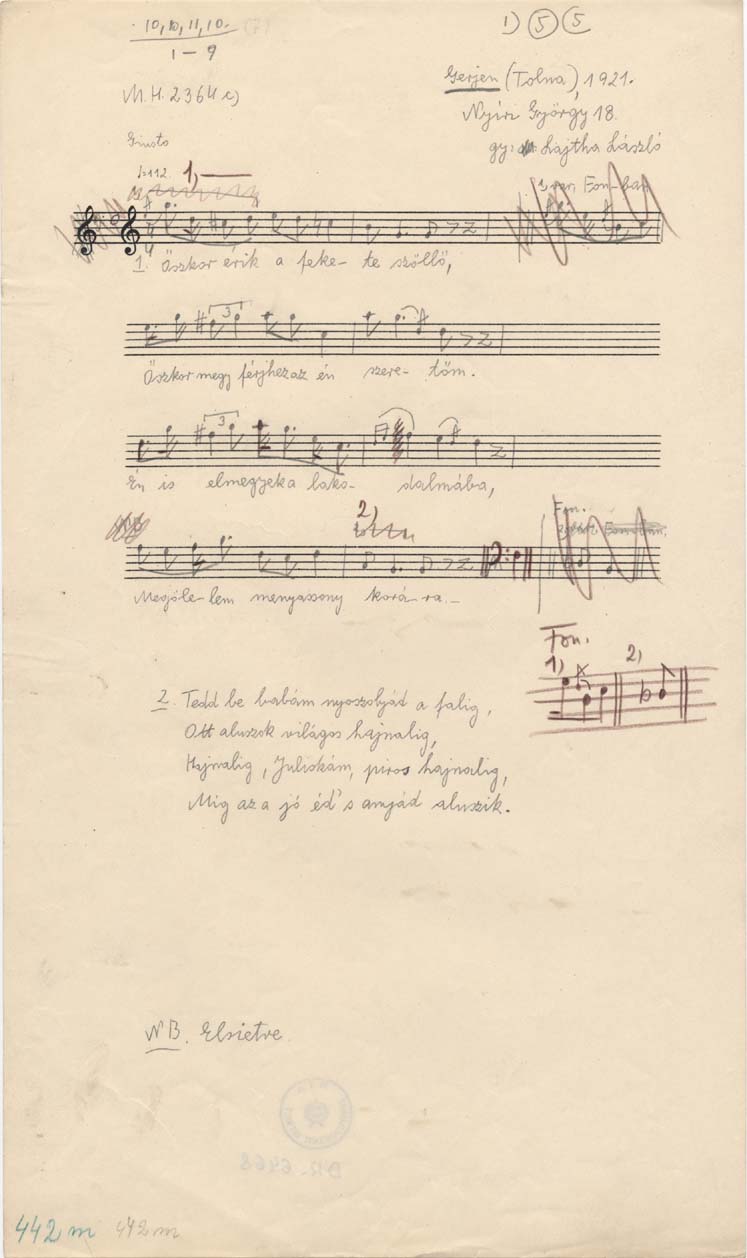 10, 10, 11, 10.
1 – 9
1) 5 5
M.H. 2364 c)
Gerjen (Tolna), 1921.
Nyíri György 18.
gy: Lajtha László
Giusto
♩=112. 1,
1. Őszkor érik a feke- te szőllő,
3
Őszkor megy férjhez az én szere- tőm.
3
Én is elmegyek a lako- dalmába,
2)
Fon.
Megöle-lem menyasszony korá-ra.-
Fon.
1) 2)
2. Tedd be babám nyoszolyád a falig,
Ott aluszok világos hajnalig,
Hajnalig, Juliskám, piros hajnalig,
Mig az a jó éd's anyjád aluszik.
NB. Elsietve.
DR. 6968
442 m 442 m